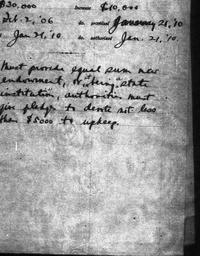 $30,000 Increase $10,000
Feb. 2, '06 do. provided January 21, '10
Jan 21, '10 do. authorized Jan. 21, '10.
Must provide equal sum new
endowment, or "being" state
institution, authorities must
give pledge to devote not less
than $5000 to upkeep.